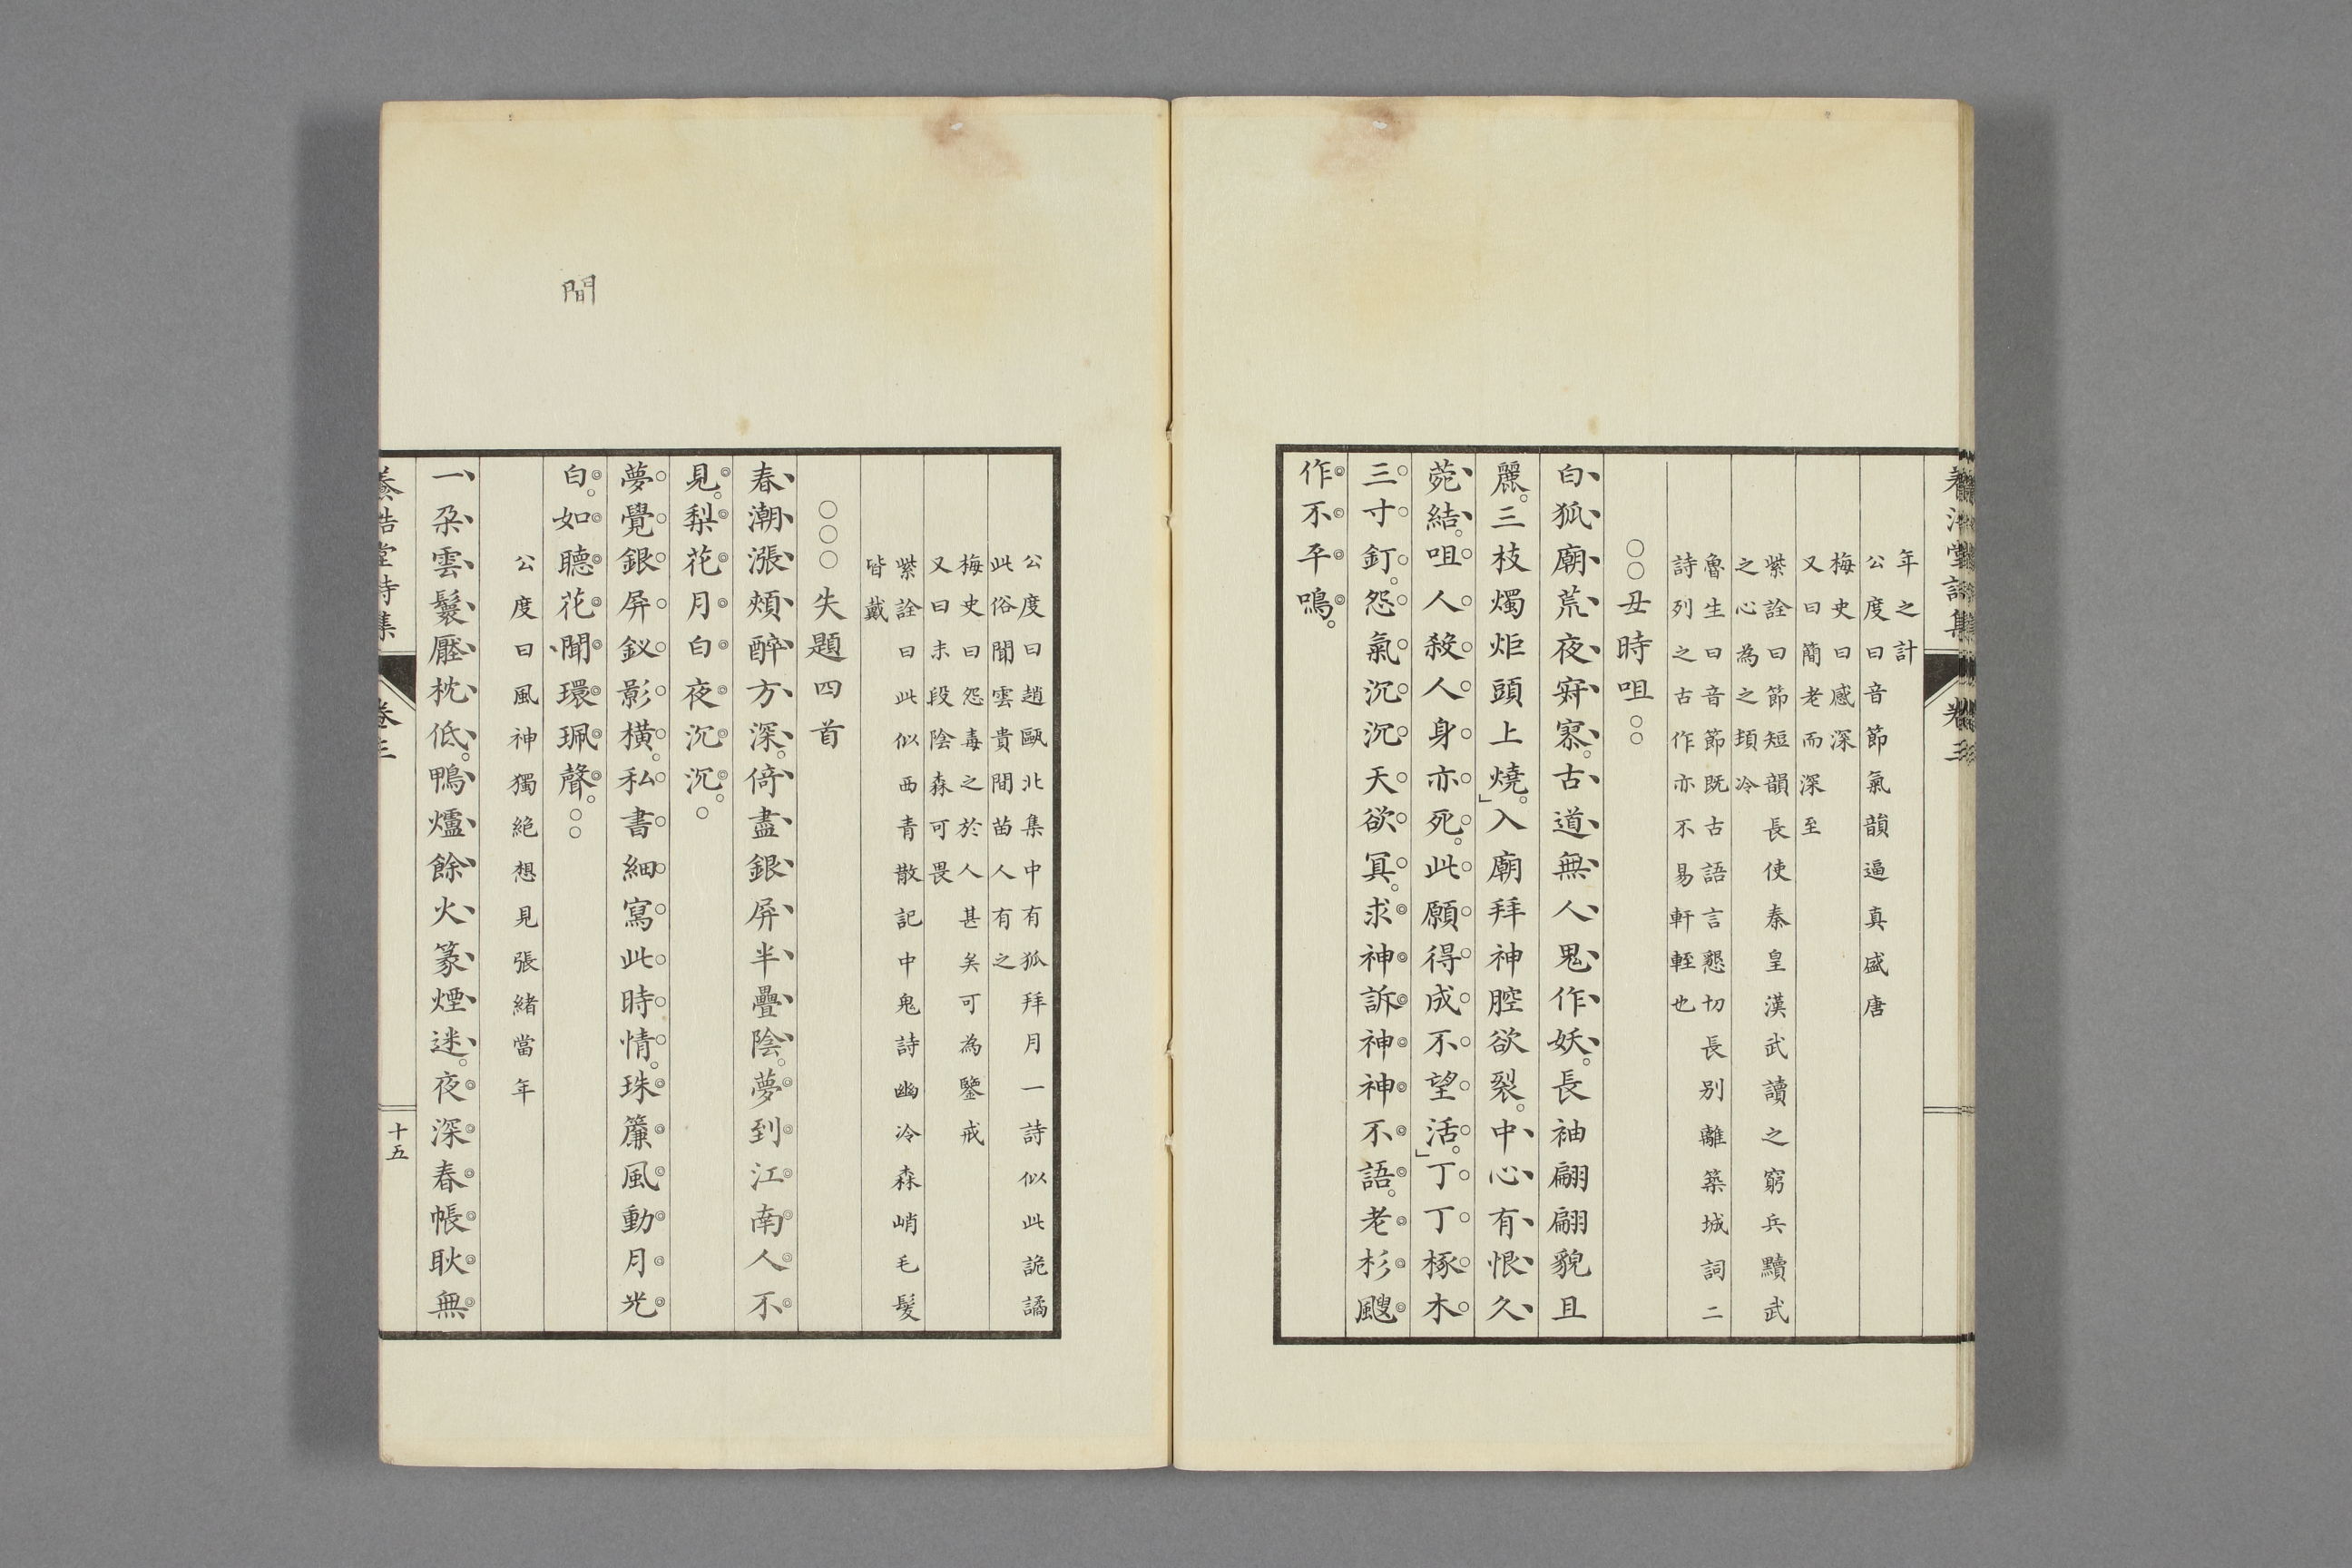 年之計
公度曰音節氣韻逼真盛唐
梅史曰感深
又曰簡老而深至
紫詮曰節短韻長使秦皇漢武讀之窮兵黷武
之心為之頓冷
魯生曰音節既古語言懇切長別離築城詞二
詩列之古作亦不易軒輊也
○○丑時咀○○
白狐廟荒夜寂寥。古道無人鬼作妖。長袖翩翩貌且
麗。三枝燭炬頭上燒。」入廟拜神腔欲裂。中心有恨久
菀結。咀人殺人身亦死。此願得成不望活。」丁丁椓木
三寸釘。怨氣沉沉天欲冥。求神訴神神不語。老杉颼
作不平鳴。
公度曰趙甌北集中有狐拜月一詩似此詭譎
此俗聞雲貴間苗人有之
梅史曰怨毒之於人甚矣可為鑒戒
又曰末段陰森可畏
紫詮曰此似西青散記中鬼詩幽冷森峭毛髮
皆戴
○○○失題四首
春潮漲頰醉方深。倚盡銀屏半疊陰。夢到江南人不
見。梨花月白夜沉沉。○
夢覺銀屏釵影橫。私書細寫此時情。珠簾風動月光
白。如聽花聞環珮聲。○○
公度曰風神獨絕想見張緒當年
一朶雲鬟壓枕低。鴨爐餘火篆煙迷。夜深春帳耿無
十五
間